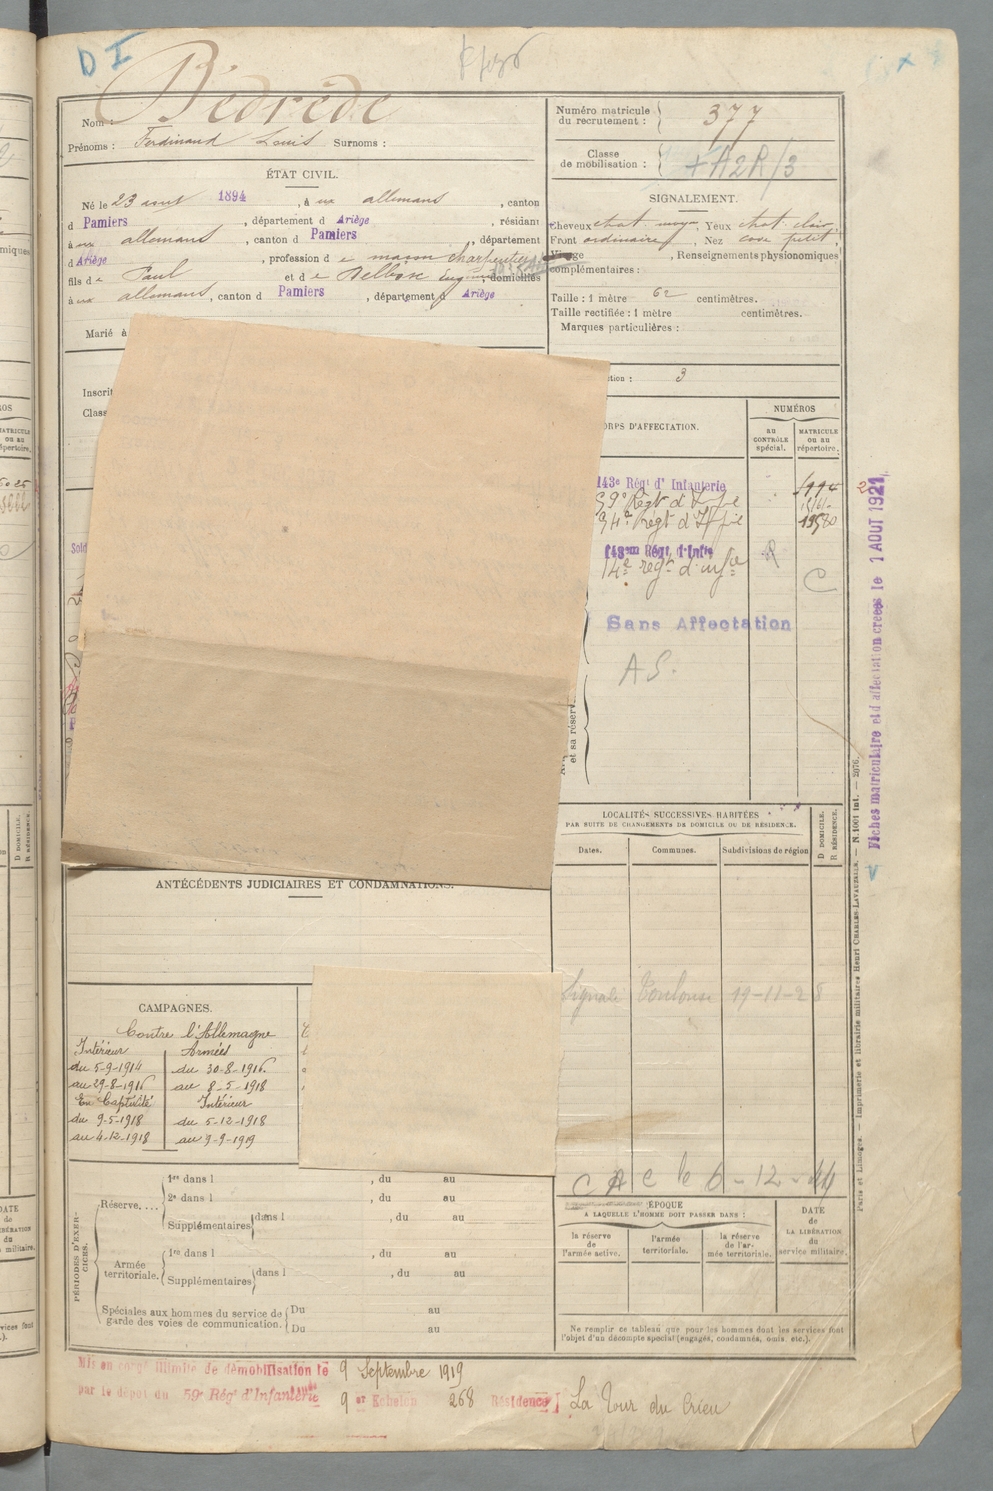 D I
Bédrède
Nom :
Prénoms : Ferdinand Louis Surnoms :
ÉTAT CIVIL.
Né le 23 aout 1894, à aux allemans, canton
d Pamiers, département d Ariège, résidant
à aux allemans, canton d Pamiers, département
d Ariège, profession d e maçon charpentier
fils d e Paul et d e Delbosc domiciliés
à aux allemans, canton d Pamiers, département d Ariège
Marié à
Inscrit
Class
Sold
Numéro matricule
du recrutement : 377
Classe
de mobilisation : + A2R/3
SIGNALEMENT.
Cheveux chat. moy., Yeux chat. clair,
Front ordinaire, Nez cave petit,
Visage , Renseignements physionomiques
complémentaires :
Taille : 1 mètre 62 centimètres.
Taille rectifiée : 1 mètre centimètres.
Marques particulières :
ction : 3
ORPS D'AFFECTATION.
NUMÉROS
AU
CONTRÔLE
spécial.
MATRICULE
OU AU
répertoire.
143e Régt d'Infanterie
59e Régt d'Infie
94e Régt d'Infie
14e régt d'infie R
C
Sans Affectation
A S.
et sa réserv
Fiches matriculaire et d'affectation créées le 1 AOUT 1921
LOCALITÉS SUCCESSIVES HABITÉES
PAR SUITE DE CHANGEMENTS DE DOMICILE OU DE RÉSIDENCE.
D DOMICILE.
R RÉSIDENCE.
Dates. Communes. Subdivisions de région
Signalé Toulouse 19-11-28
C A C le 6-12-44
ANTÉCÉDENTS JUDICIAIRES ET CONDAMNATIONS.
CAMPAGNES.
Contre l'Allemagne
Intérieur Armées
du 5-9-1914 du 30-8-1916
au 29-8-1916 au 8-5-1918
En Captivité Intérieur
du 9-5-1918 du 5-12-1918
au 4-12-1918 au 9-9-1919
PÉRIODES D'EXER-
CICES.
Réserve....
1re dans l , du au
2e dans l , du au
Supplémentaires dans l , du au
Armée
territoriale.
1re dans l , du au
Supplémentaires dans l , du au
Spéciales aux hommes du service de
garde des voies de communication.
Du au
Du au
ÉPOQUE
A LAQUELLE L'HOMME DOIT PASSER DANS :
la réserve
de
l'armée active.
l'armée
territoriale.
la réserve
de l'ar-
mée territoriale.
DATE
de
LA LIBÉRATION
du
service militaire.
Ne remplir ce tableau que pour les hommes dont les services font
l'objet d'un décompte spécial (engagés, condamnés, omis, etc.).
Paris et Limoges. — Imprimerie et librairie militaires Henri CHARLES-LAVAUZELLE. — N. 1001 int. — 2076.
Mis en congé illimité de démobilisation le 9 Septembre 1919
par le dépôt du 59e Régt d'Infanterie 9 Echelon 268 Résidence La Tour du Crieu